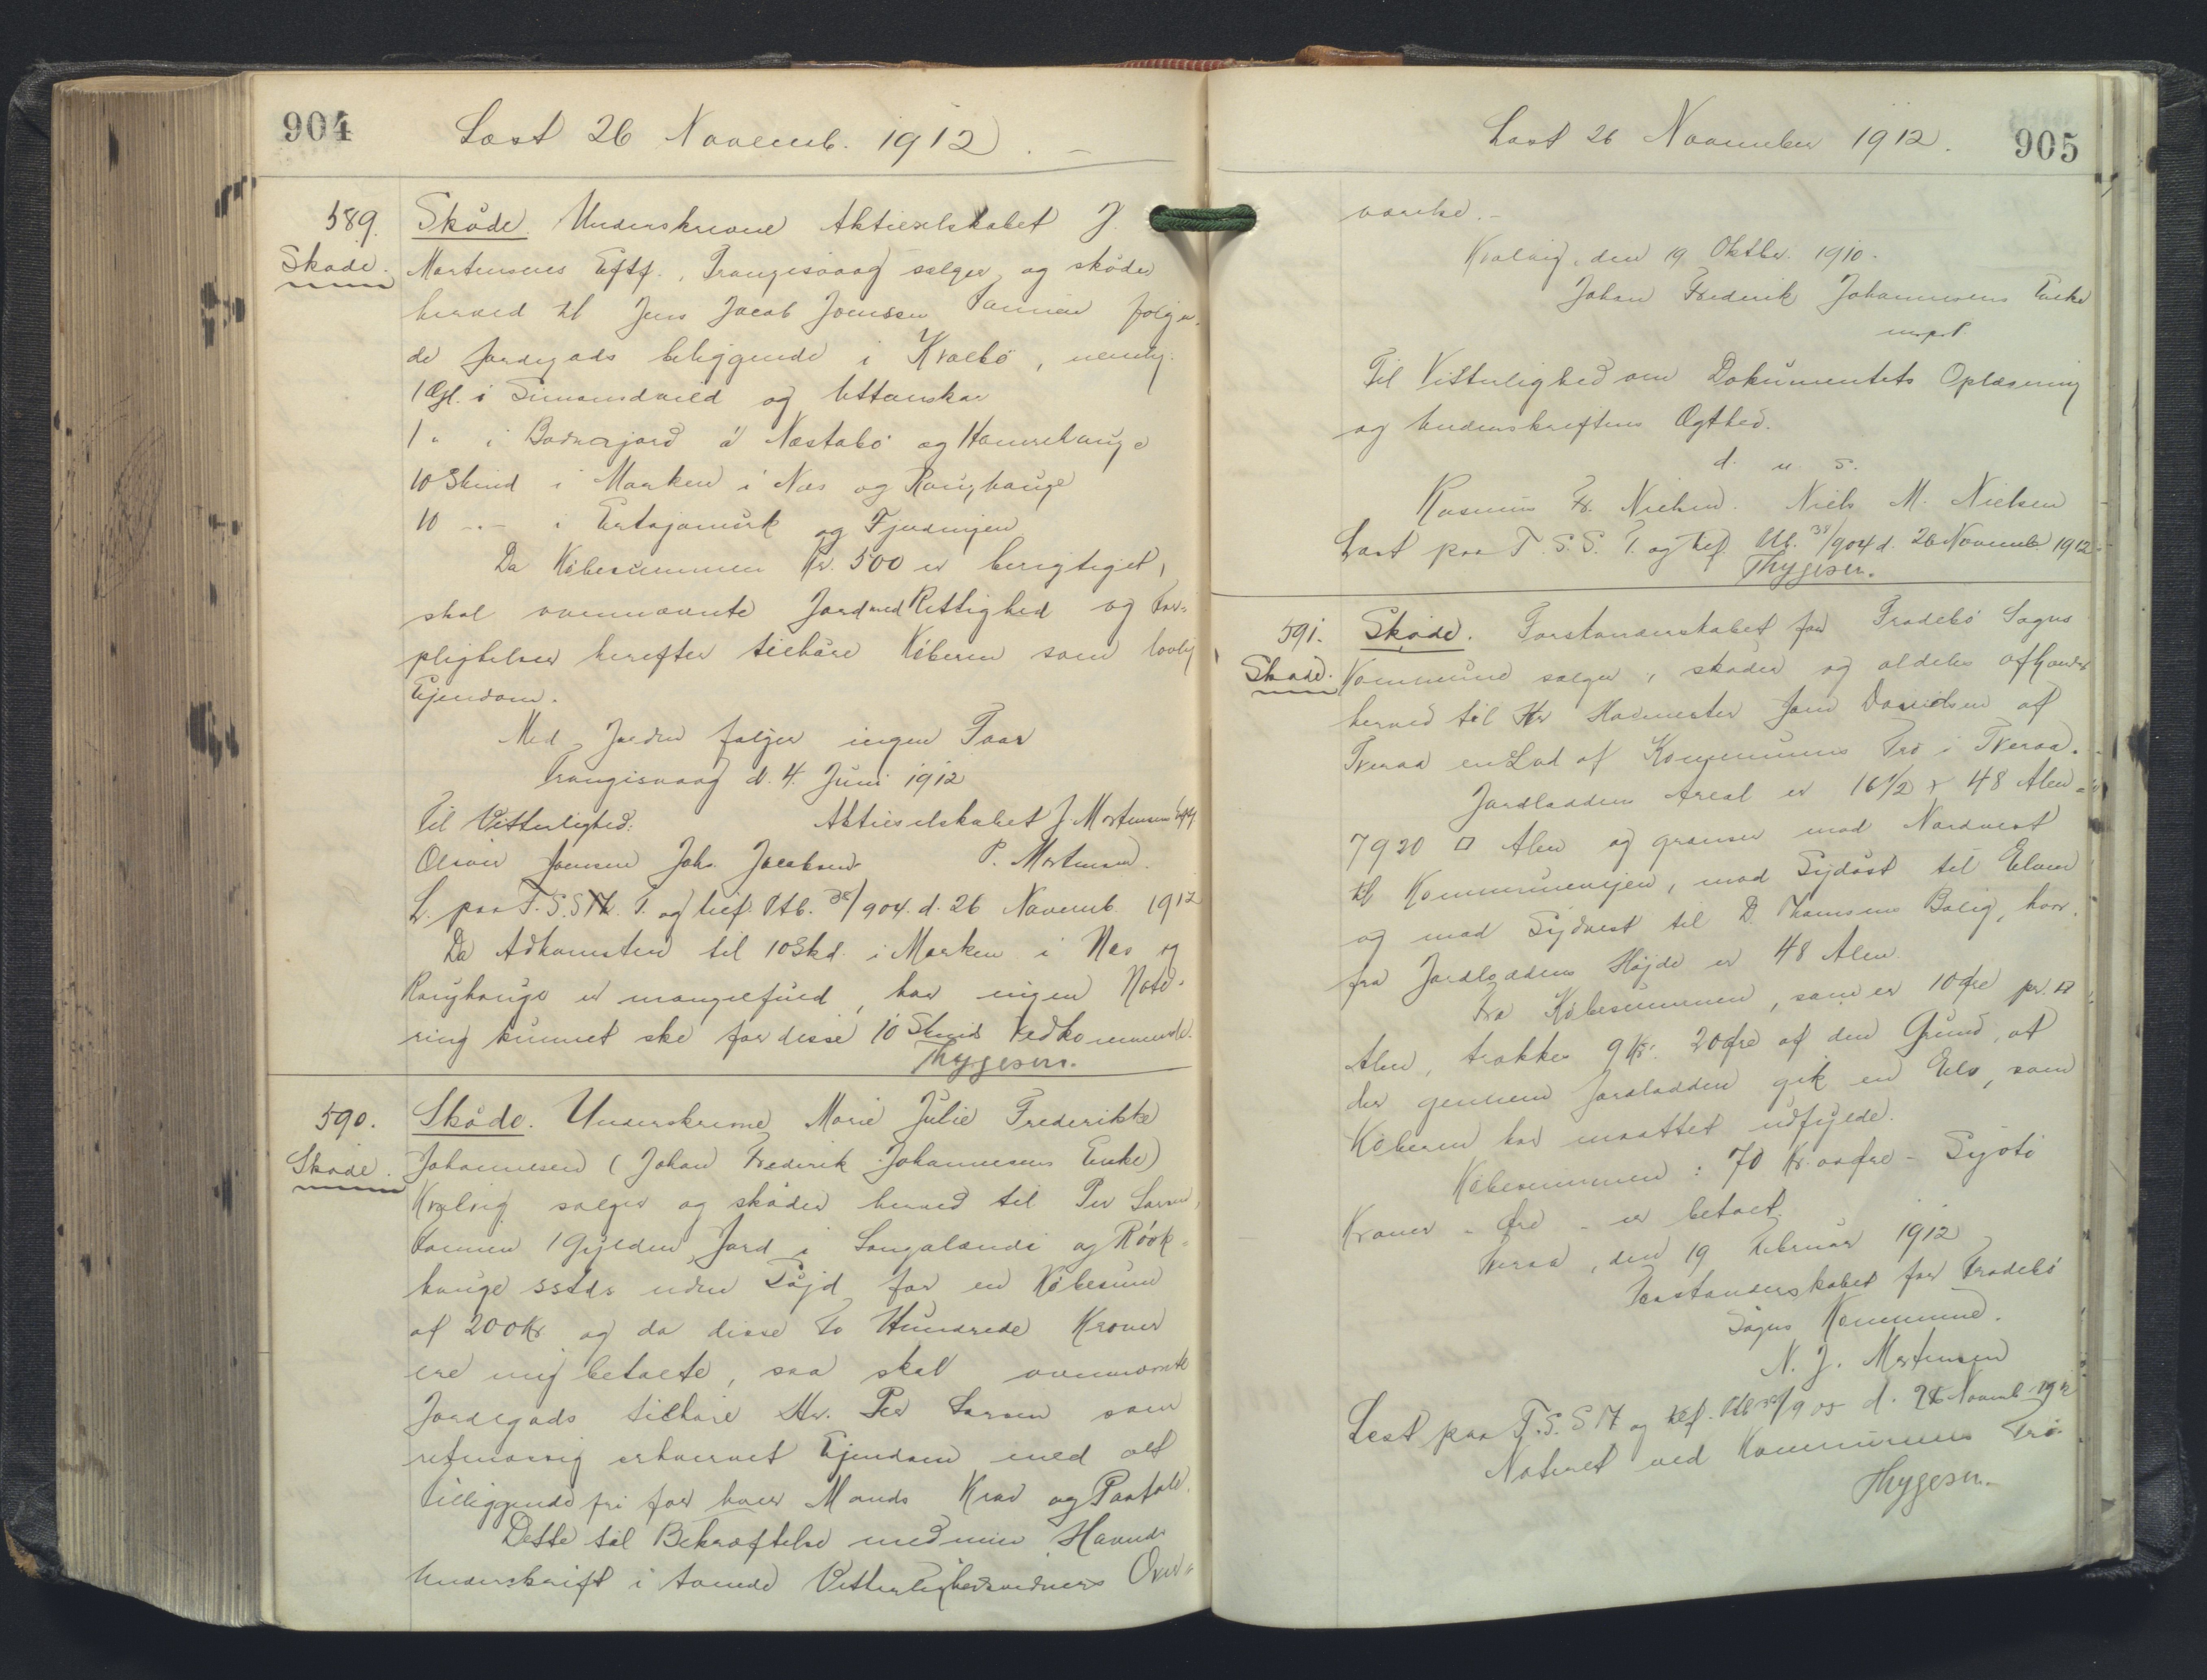 904
Læst 26 Novemb. 1912.
589.
Skøde.
Skøde. Underskrevne Aktieselskabet J.
Mortensens Eftf., Trangisvaag sælger og skøder
herved til Jens Jacob Joensen Famien følgen-
de Jordegods beliggende i Kvalbø, nemlig:
1 Gl. i Simansdvild og Uttanskar
1 " i Badnagjord á Næstabø og Hamrehauge
10 Skind i Marken i Næs og Ranghauge
10 -"- i og Fjardingen
Da Købesummen Kr. 500 er berigtiget,
skal ovennævnte Jord med Rettighed og For-
pligtelser herefter tilhøre Køberen som lovlig
Ejendom.
Med Jorden følger ingen Faar
Trangisvaag d. 4. Juni 1912
Til Vitterlighed: Aktieselskabet J. Mortensens Eftf
Oliver Joensen Johs. Jacobsen P. Mortensen.
L. paa F. S. S. T. og tilf. Ub. 38/904. d. 26 Novemb. 1912
Da Adkomsten til 10 Skd. i Marken i Næs og
Ranghauge er mangelfuld, har ingen Note-
ring kunnet ske for disse 10 Skinds Vedkommende.
Thygesen.
590.
Skøde.
Skøde. Underskrevne Marie Julie Frederikke
Johannesen (Johan Frederik Johannesens Enke)
Kvalvig sælger og skøder herved til Per Larsen,
Famien 1 Gylden Jord i Langalandi og Røok-
hauge sstds uden Tøjd for en Købesum
af 200 Kr og da disse To Hundrede Kroner
ere mig betalte, saa skal ovennævnte
Jordegods tilhøre Hr. Per Larsen som
retmæssig erhvervet Ejendom med alt
tilliggende fri for hver Mands Krav og Paatale.
Dette til Bekræftelse med min Haands
Underskrift i tvende Vitterlighedsvidners Over-
Læst 26 November 1912.
905
værelse.-
Kvalvig, den 19 Oktbr. 1910.
Johan Frederik Johannesens Enke
m. p. P.
Til Vitterlighed om Dokumentets Oplæsning
og Underskriftens Ægthed.
d. u. s.
Rasmus Fr. Nielsen. Niels M. Nielsen
Læst paa F. S. S. T. og tilf. Ub. 38/904 d. 26 Novemb 1912
Thygesen.
591.
Skøde.
Skøde. Forstanderskabet for Frodebø Sogns
Kommune sælger, skøder og aldeles afhænder
herved til Hr Havnester Davidsen af
Tveraa en Lod af Kommunens Trø i Tveraa.
Jordloddens Areal er 16½ x 48 Alen =
7920 □ Alen og grænser mod Nordvest
til Kommunevejen, mod Sydøst til Elven
og mod Sydvest til D. Thomsens Bolig, hvor-
fra Jordloddens Højde er 48 Alen.
Fra Købesummen, som er 10 Øre pr. □
Alen, trækkes 9 Kr. 20 Øre af den Grund, at
der gennem Jordlodden gik en Elv, som
Køberen har maattet udfylde.
Købesummen: 70 Kr. 00 Øre - Syvti
Kroner - Øre - er betalt.
Tveraa, den 19 Februar 1912
Forstanderskabet for Frodebø
Sogns Kommune.
N. J. Mortensen
Læst paa F. S. S T og tilf. Ub 38/905 d. 26 Novemb 1912
Noteret ved Kommunens Trø.
Thygesen.